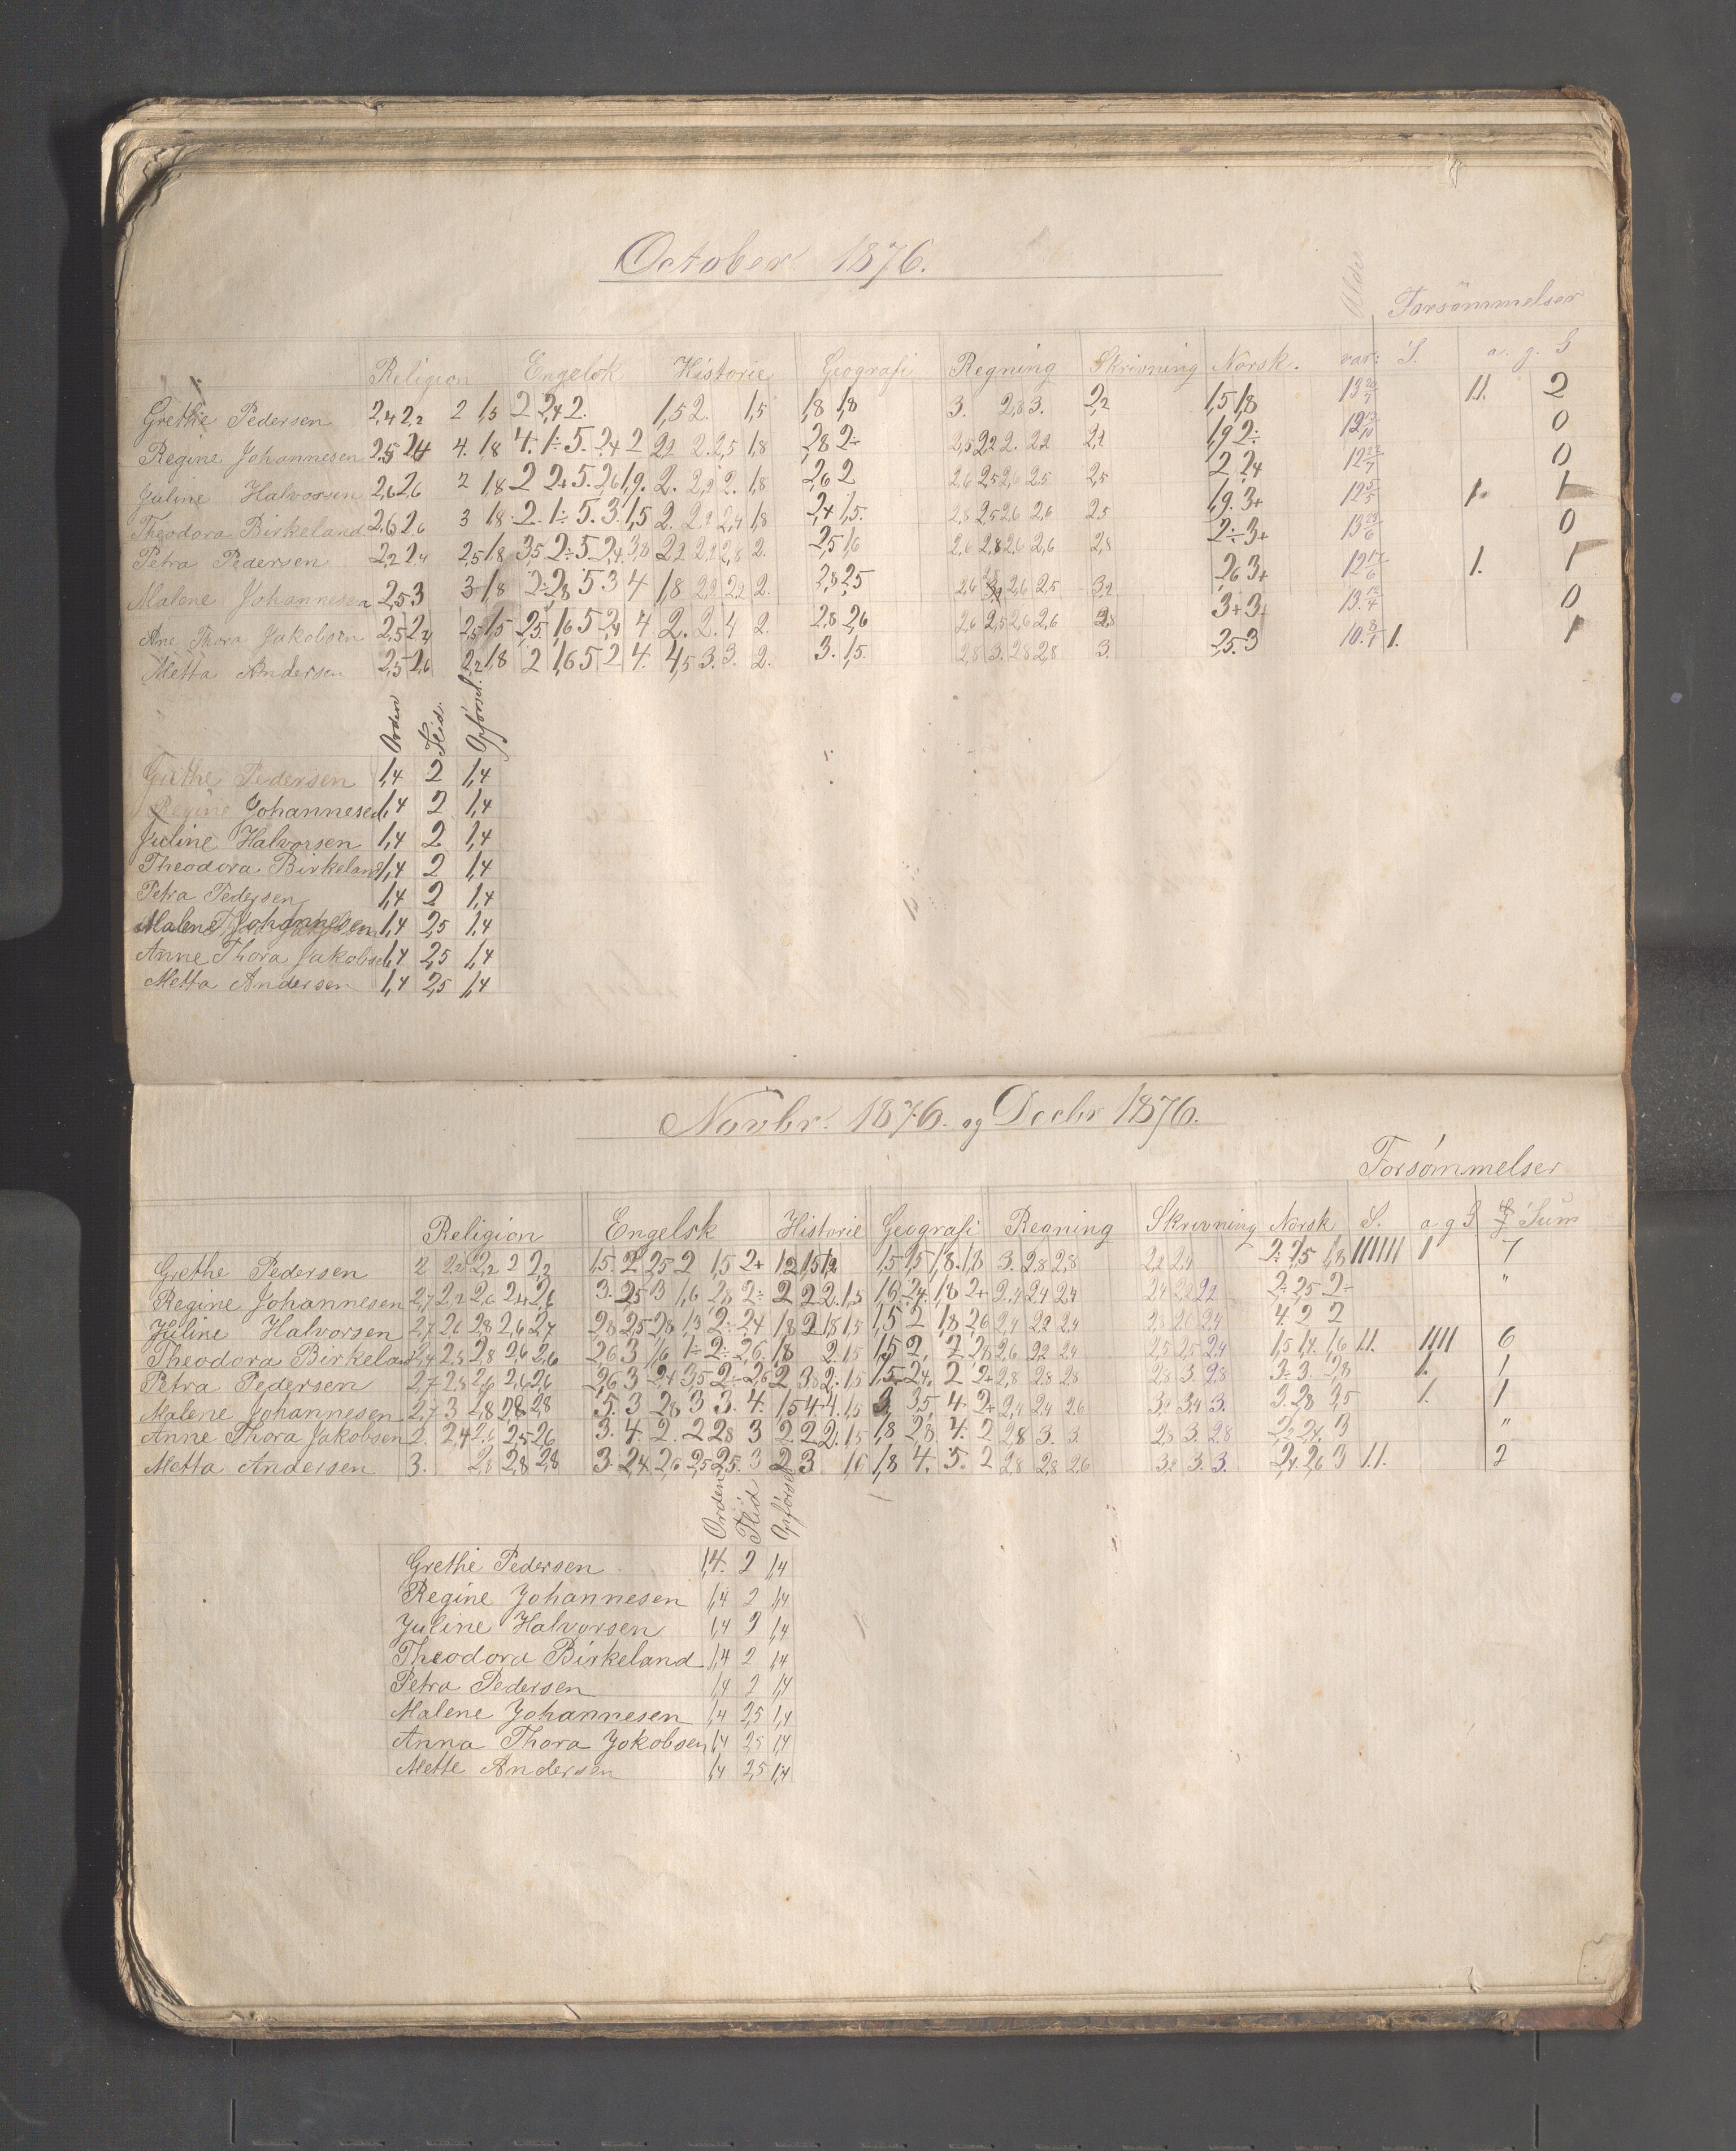 October 1876.
Alder Forsömmelser
Religion Engelsk Historie Geografi Regning Skrivning Norsk. S. a. g. S
Grethe Pedersen 2,4 2,2 2 1,5 2 2,4 2. 1,5 2. 1,5 1,8 1,8 3. 2,8 3. 2,2 1,5 1,8 11. 2
Regine Johannesen 2,5 2,4 4. 1,8 4. 1÷ 5. 2,4 2 2,2 2. 2,5 1,8 2,8 2÷ 2,5 2,2 2. 2,2 2,2 1,9 2÷ 0
Juline Halvorsen 2,6 2,6 2 1,8 2 2,4 5. 2,6 1,9. 2. 2,2 2. 1,8 2,6 2 2,6 2,5 2,6 2,5 2,5 2 2,4 0
Theodora Birkeland 2,6 2,6 3 1,8 2. 1÷ 5. 3. 1,5 2. 2,2 2,4 1,8 2,4 1,5. 2,8 2,5 2,6 2,6 2,5 1,9. 3+ 1. 1
Petra Pedersen 2,2 2,4 2,5 1,8 3,5 2÷ 5 2,4 3,8 2,2 2,2 2,8 2. 2,5 1,6 2,6 2,8 2,6 2,6 2,8 2÷ 3+ 0
Malene Johannesen 2,5 3 3 1,8 2÷ 2,8 5 3 4 1,8 2,2 2,2 2. 2,8 2,5 2,6 2,6 2,5 3,2 2,6 3+ 1. 1
Ane Thora Jakobsen 2,5 2,2 2,5 1,5 2,5 1,6 5 2,4 4 2. 2. 4 2. 2,8 2,6 2,6 2,5 2,6 2,6 3+ 3+ 0
Metta Andersen 2,5 2,6 2,2 1,8 2 1,6 5 2 4. 4,5 3. 3. 2. 3. 1,5. 2,8 3. 2,8 2,8 3. 2,5 3 1. 1
Orden Flid. Opförsel.
Grethe Pedersen 1,4 2 1,4
Regine Johannesen 1,4 2 1,4
Juline Halvorsen 1,4 2 1,4
Theodora Birkeland 1,4 2 1,4
Petra Pedersen 1,4 2 1,4
Malene Johannesen 1,4 2,5 1,4
Anne Thora Jakobsen 1,4 2,5 1,4
Metta Andersen 1,4 2,5 1,4
Novbr. 1876. og Decbr 1876.
Forsömmelser
Religion Engelsk Historie Geografi Regning Skrivning Norsk S. a g S Sum
Grethe Pedersen 2 2,2 2,2 2 2,2 1,5. 2 2,5 2 1,5 2+ 1,2 1,5 1,2 1,5 1,5 1,8. 1,8 3. 2,8 2,8 2,2 2,4 2÷ 2,5 1,8 111111 1 7
Regine Johannesen 2,7 2,2 2,6 2,4 2,6 3. 2,5 3 1,6 2,8 2÷ 2 2 2. 1,5 1,6 2,4. 1,8 2+ 2,4 2,4 2,4 2,4 2,2 2,2 2÷ 2,5 2÷ "
Juline Halvorsen 2,7 2,6 2,8 2,6 2,7 2,8 2,5 2,8 1,3 2÷ 2,4 1,8 2 1,8 1,5 1,5 2 1,8 2,6 2,4 2,2 2,4 2,8 2,6 2,4 4. 2 2
Theodora Birkeland 2,4 2,8 2,8 2,6 2,6 2,6 3 1,6 1÷ 2÷ 2,6. 1,8 2. 1,5 1,5 2. 2 2,8 2,6 2,2 2,4 2,5 2,5 2,4 1,5 1,4. 1,6 11. 1111 6
Petra Pedersen 2,7 2,8 2,6 2,6 2,6 2,6 3 2,4 3,5 2÷ 2,6 2 3,8 2. 1,5 1,5 2,4. 2 2+ 2,8 2,8 2,8 2,8 3. 2,8 3÷ 3. 2,8 1. 1
Malene Johannesen 2,7 3 2,8 2,8 2,8 5. 3 2,8 3 3. 4. 1,5 4. 4. 1,5 3 3,5 4. 2+ 2,4 2,4 2,6 3,2 3,4 3. 3. 2,8 3,5 1. 1
Anne Thora Jakobsen 2. 2,4 2,6 2,5 2,6 3. 4. 2. 2 2,8 3 2. 2. 2. 1,5 1,8 2,8 4. 2 2,8 3. 3. 2,8 3. 2,8 2,2 2,4. 3 "
Metta Andersen 3. 2,8 2,8 2,8 3. 2,4. 2,6 2,5 2,5. 3 2 3 1,6 1,8 4. 5. 2 2,8 2,8 2,6 3,2 3. 3. 2,4. 2,6 3 1.1. 2
Orden Flid Opförsel
Grethe Pedersen 1,4. 2 1,4
Regine Johannesen 1,4 2 1,4
Juline Halvorsen 1,4 2 1,4
Theodora Birkeland 1,4 2 1,4
Petra Pedersen 1,4 2 1,4
Malene Johannesen 1,4 2,5 1,4
Anna Thora Jokobsen 1,4 2,5 1,4
Mette Andersen 1,4 2,5 1,4